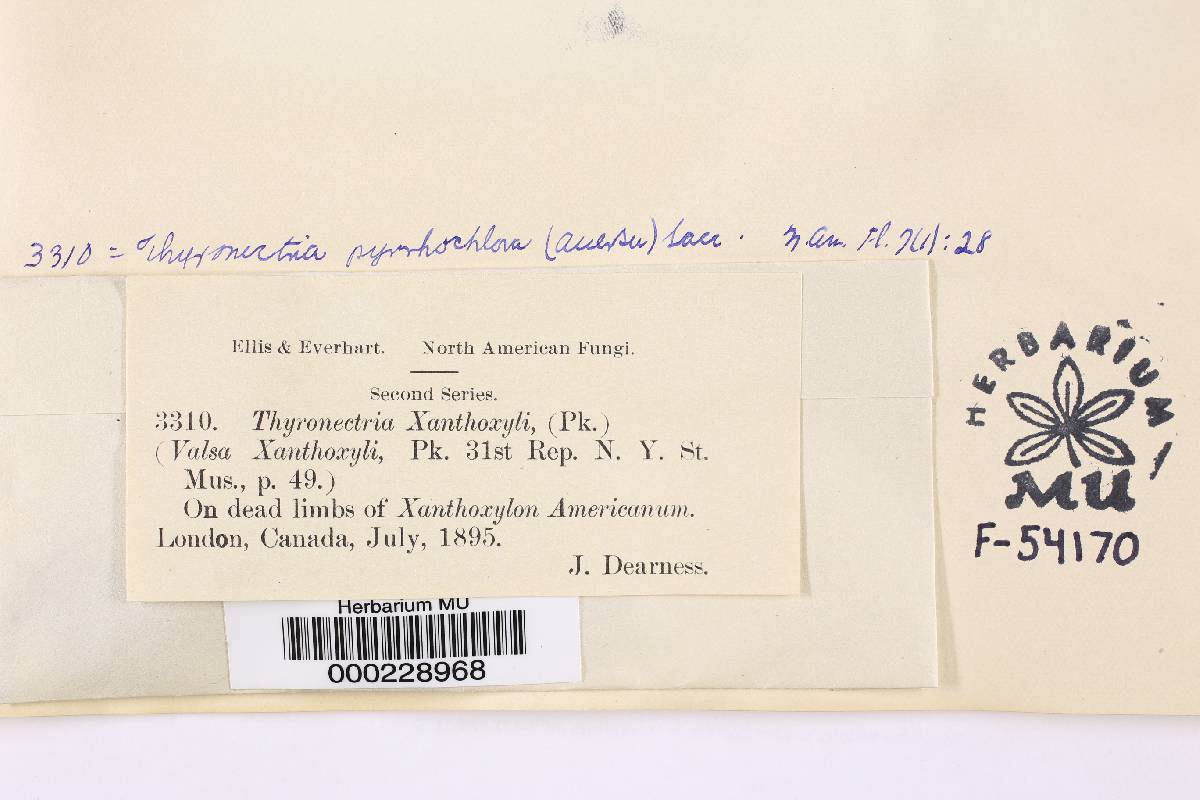 3310 = Thyronectria pyrrhochlora (Auersw) Sacc. N. Am. Fl. 3(1): 28
Ellis & Everhart. North American Fungi.
Second Series.
3310. Thyronectria Xanthoxyli, (Pk.)
(Valsa Xanthoxyli, Pk. 31st Rep. N. Y. St.
Mus., p. 49.)
On dead limbs of Xanthoxylon Americanum.
London, Canada, July, 1895.
J. Dearness.
HERBARIUM,
MU
F-54170
Herbarium MU
000228968